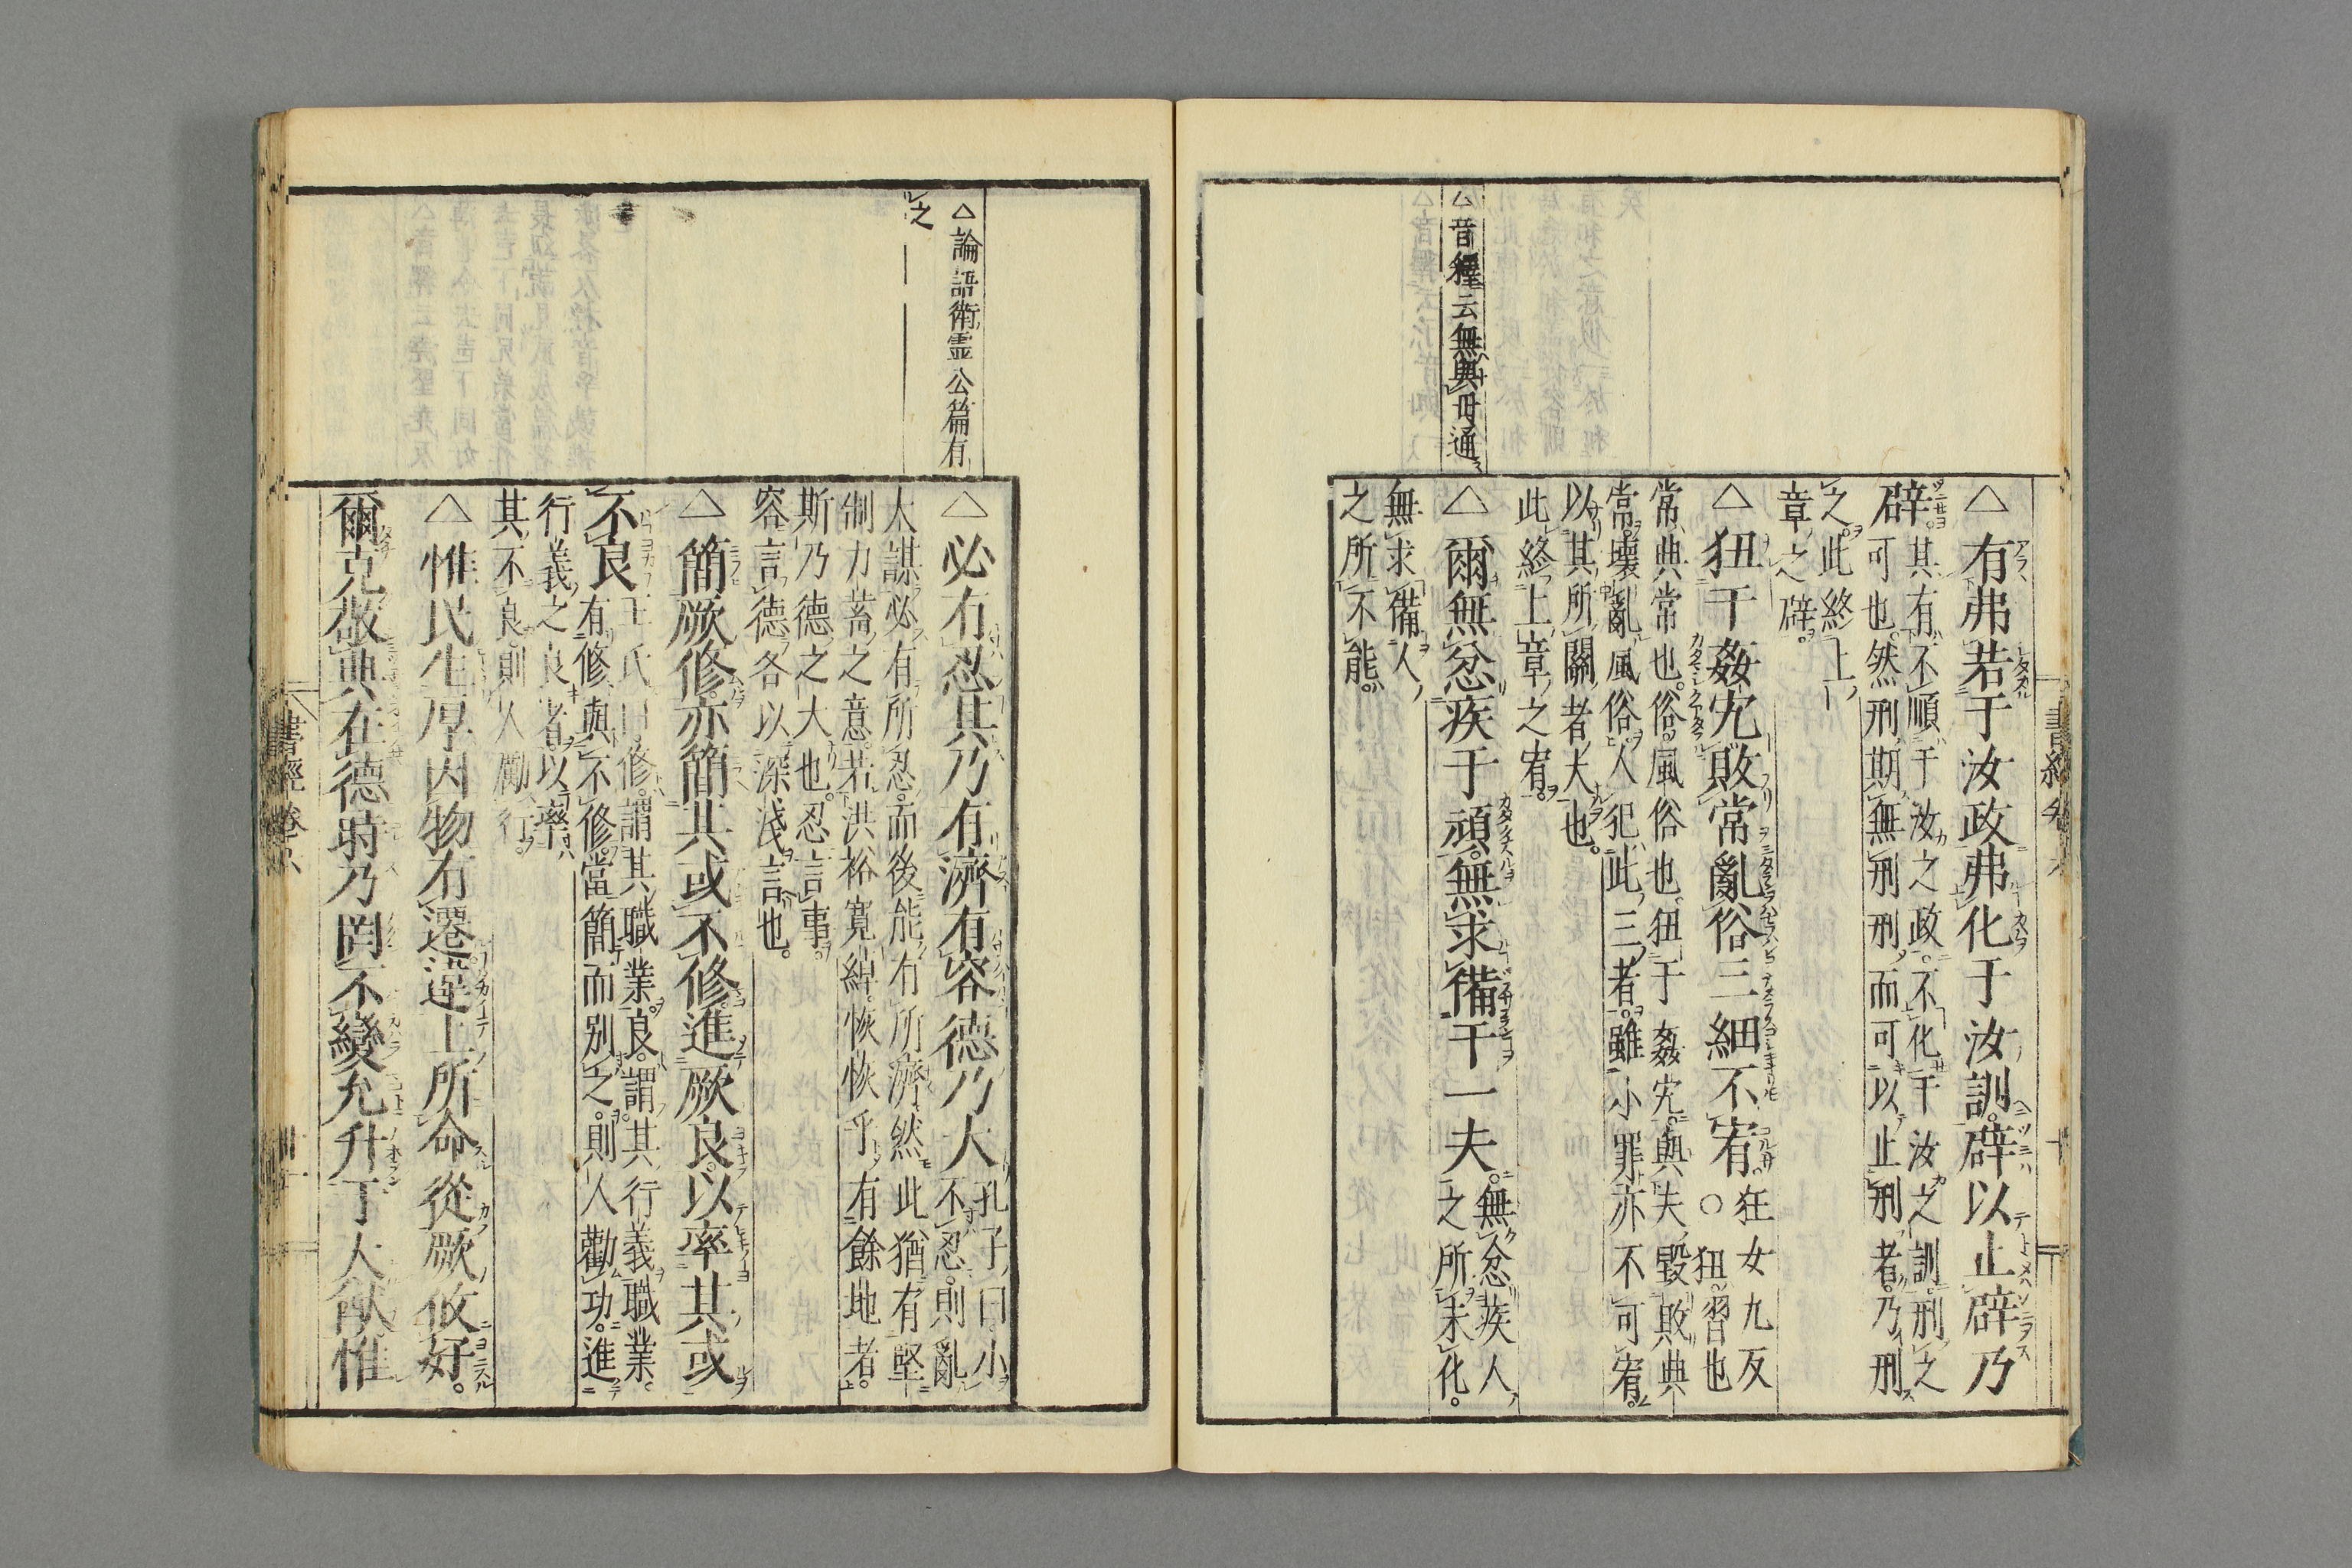 △音釋云無與毋通
△有弗若于汝政弗化于汝訓辟以止辟乃
辟其有不順于汝之政不化于汝之訓刑之
可也然刑期無刑刑而可以止刑者乃刑
之此終上
章之辟
△狃于姦宄敗常亂俗三細不宥○狃女九反
狃習也
常典常也俗風俗也狃于姦宄與夫毀敗典
常壞亂風俗人犯此三者雖小罪亦不可宥
以其所關者大也
此終上章之宥
△爾無忿疾于頑無求備于一夫無忿疾人
之所未化
無求備人
之所不能
△論語衛靈公篇有
之
△必有忍其乃有濟有容德乃大孔子曰小
不忍則亂
大謀必有所忍而後能有所濟然此猶有堅
制力蓄之意若洪裕寬綽恢恢乎有餘地者
斯乃德之大也忍言事
容言德各以深淺言也
△簡厥修亦簡其或不修進厥良以率其或
不良王氏曰修謂其職業良謂其行義職業
有修與不修當簡而别之則人勸功進
行義之良者以率
其不良則人勵行
△惟民生厚因物有遷違上所命從厥攸好
爾克敬典在德時乃罔不變允升于大猷惟
書經卷八